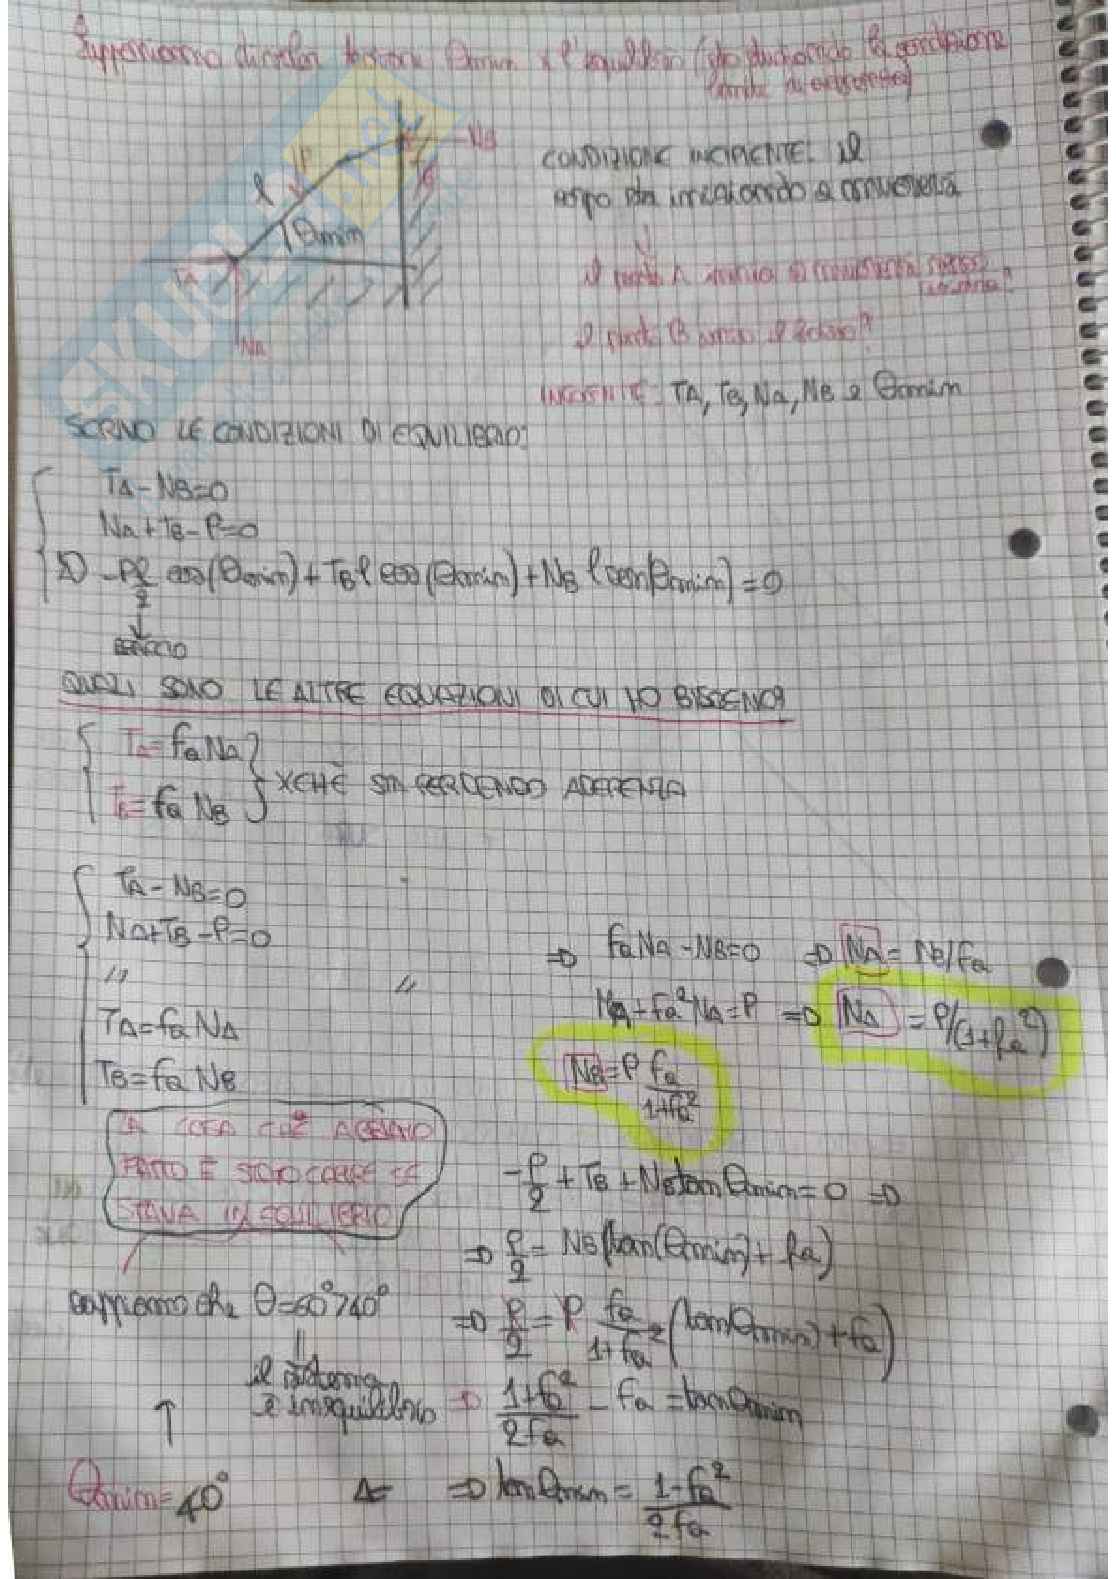 Supponiamo di voler trovare θmin x l'equilibrio (sto studiando la condizione
limite di
NB
P
l
θmin
TA
NA
CONDIZIONE INCIPIENTE: il
corpo sta iniziando a muoversi
il punto A inizia a muoversi verso
il punto B verso il basso?
INCOGNITE: TA, TB, Na, NB e θmin
SCRIVO LE CONDIZIONI DI EQUILIBRIO:
TA - NB = 0
Na + TB - P = 0
- Pl/2 cos(θmin) + TB l cos(θmin) + NB l sen(θmin) = 0
BRACCIO
QUALI SONO LE ALTRE EQUAZIONI DI CUI HO BISOGNO?
TA = fa Na
TB = fa NB
XCHÈ STA PERDENDO ADERENZA
TA - NB = 0
NA + TB - P = 0
// //
TA = fa NA
TB = fa NB
=> fa NA - NB = 0 => NA = NB/fa
NA + fa² NA = P => NA = P/(1+fa²)
NB = P fa/1+fa²
LA COSA CHE ABBIAMO
FATTO È STATO COME SE
STAVA IN EQUILIBRIO
- P/2 + TB + NB tan θmin = 0 =>
=> P/2 = NB (tan(θmin) + fa)
sappiamo che θ = 60° > 40°
=> P/2 = P fa/1+fa² (tan(θmin) + fa)
il sistema
è in equilibrio
=> 1+fa²/2fa - fa = tan θmin
θmin = 40°
=> tan θmin = 1-fa²/2fa